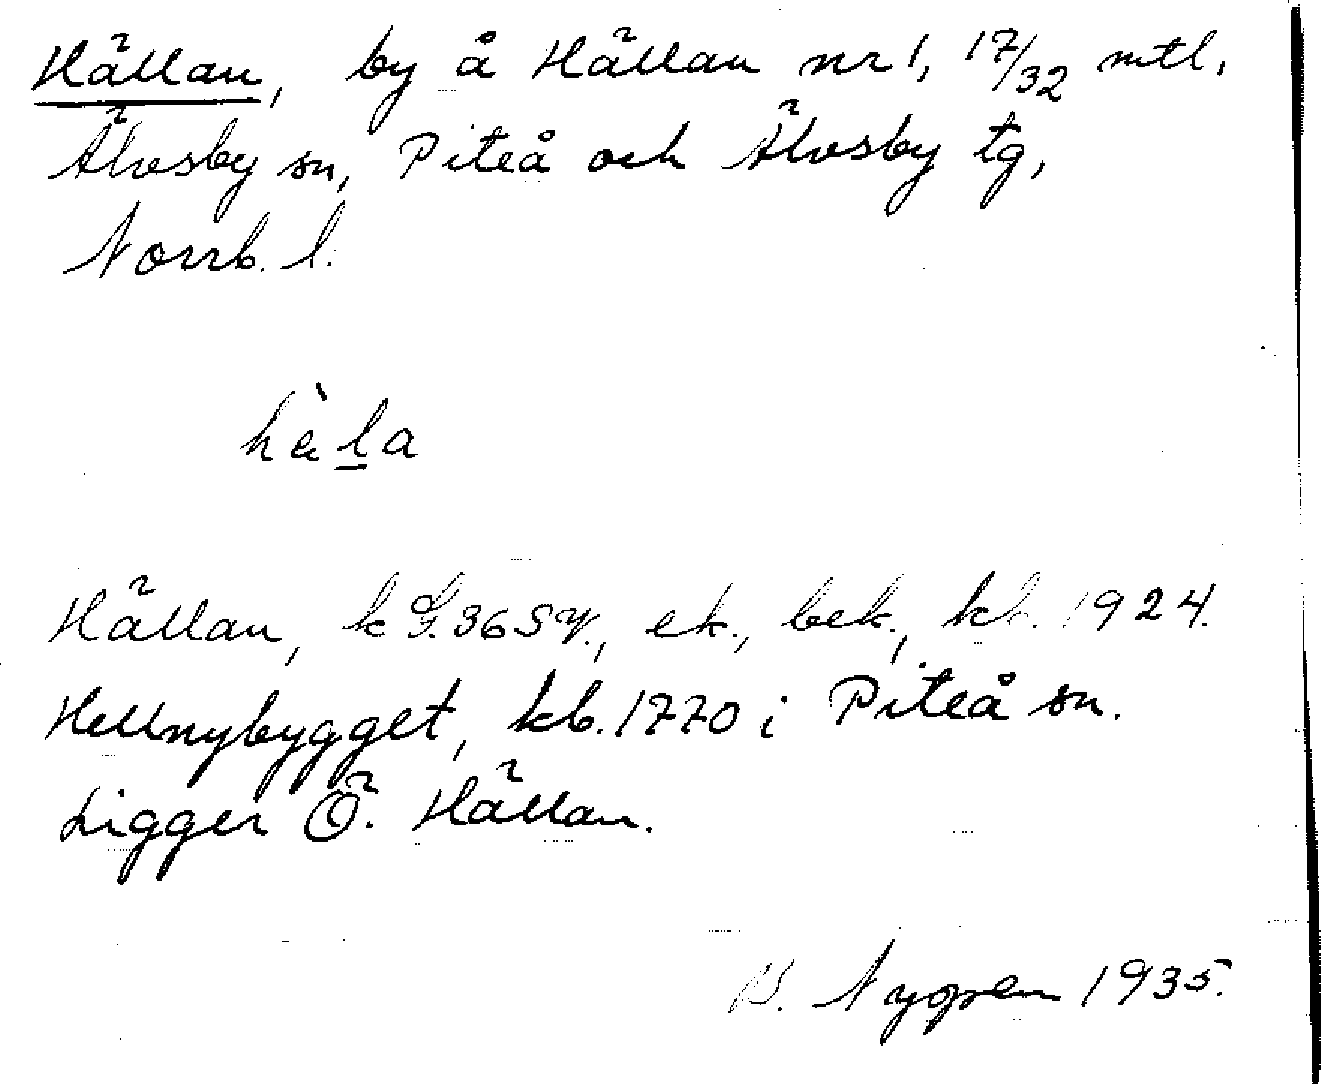 Hällan, by å Hällan nr 1, 17/32 mtl,
Älvsby sn, Piteå och Älvsby tg,
Norrb. l.
hä̀l̲a
Hällan, k G.36SV., ek., bek., kb. 1924.
Hellnybygget, kb. 1770 i Piteå sn.
Ligger Ö. Hällan.
B. Nygren 1935.